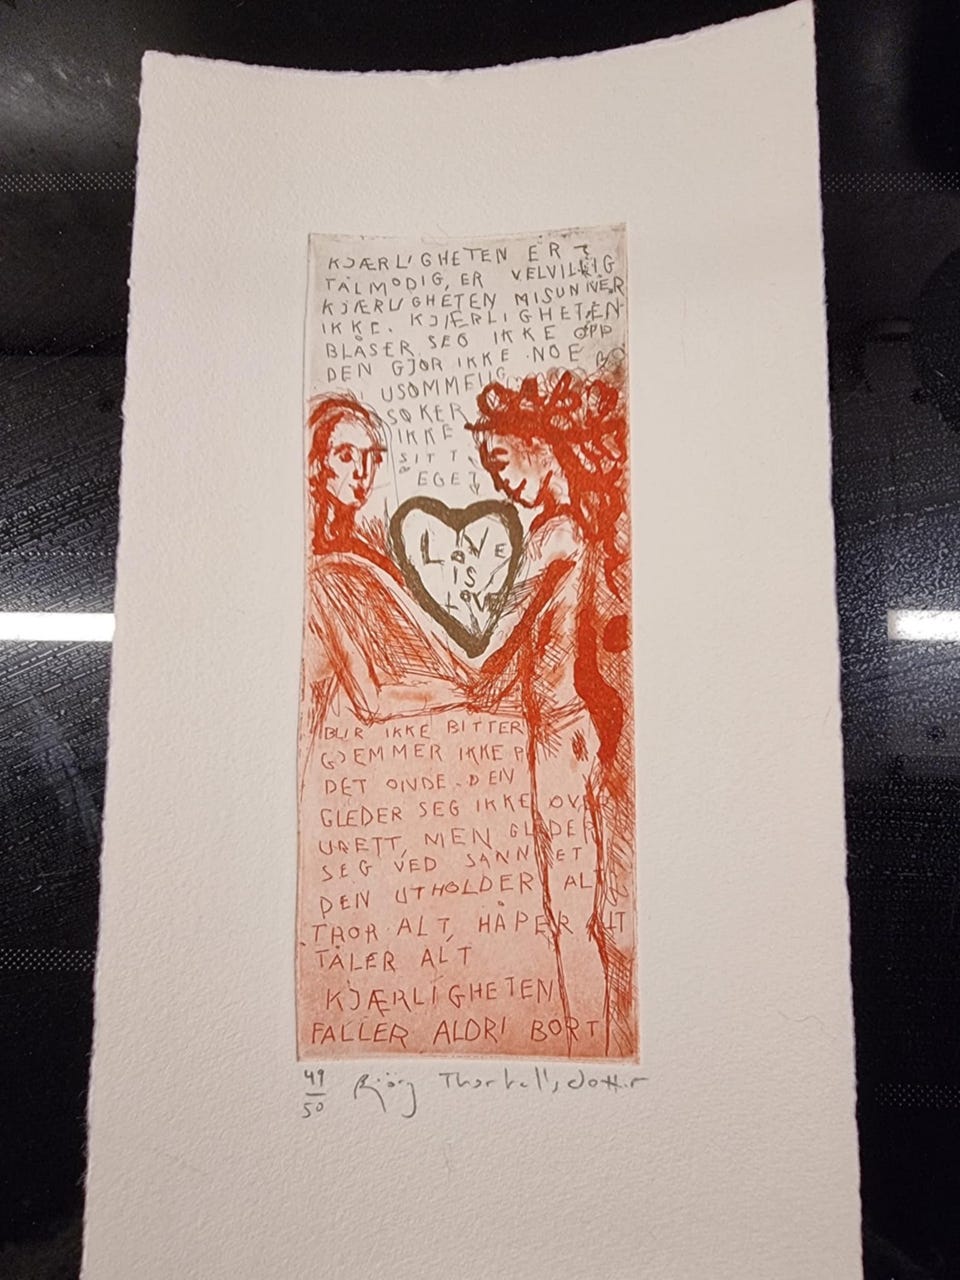 KJÆRLIGHETEN ER
TÅLMODIG, ER VELVILLIG
KJÆRLIGHETEN MISUNNER
IKKE. KJÆRLIGHETEN
BLÅSER SEG IKKE OPP
DEN GJØR IKKE NOE
USØMMELIG
SØKER
IKKE
SITT
EGET
LOVE
IS
LOVE
BLIR IKKE BITTER
GJEMMER IKKE PÅ
DET ONDE. DEN
GLEDER SEG IKKE OVER
URETT, MEN GLEDER
SEG VED SANNHET
DEN UTHOLDER ALT
TROR ALT, HÅPER ALT
TÅLER ALT
KJÆRLIGHETEN
FALLER ALDRI BORT
49/50 Björg Thorhallsdottir